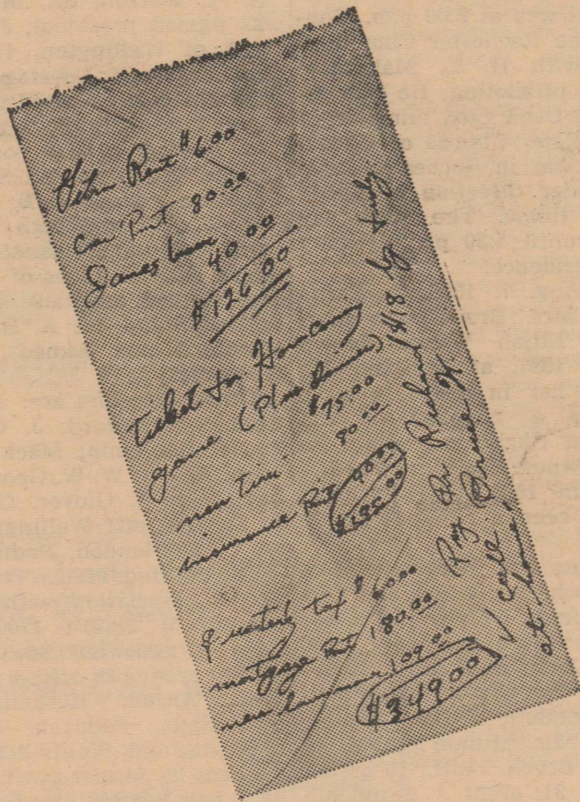 Rent $6.00
Car Pmt 80.00
James loan
40.00
$126.00
Ticket for Homecoming
game (Plus dinner)
$75.00
new tires 80.00
insurance Pmt 40.00
$195.00
quarterly tax $60.00
mortgage Pmt 180.00
new lawnmower 109.00
$349.00
Pay Dr. Richard $418 by
✓ call Bruce H.
at home!